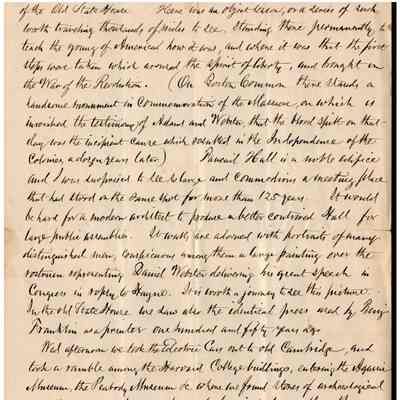 of the Old State House. Here was an object lesson, or a series of such
worth traveling thousands of miles to see, standing there permanently, to
teach the young of America how it was, and where it was that the first
steps were taken which aroused the spirit of liberty, and brought on
the War of the Revolution. (On Boston Common there stands a
handsome monument in Commemoration of the Massacre, on which is
inscribed the testimony of Adams and Webster, that the blood spilt on that
day was the incipient cause which resulted in the Independence of the
Colonies a dozen years later) Faneuil Hall is a noble edifice
and I was surprised to see so large and commodious a meeting place
that had stood on the same spot for more than 125 years. It would
be hard for a modern architect to produce a better contrived Hall for
large public assemblies. It walls are adorned with portraits of many
distinguished men, conspicuous among them a large painting over the
rostrum representing Daniel Webster delivering his great speech in
Congress in reply to Hayne. It is worth a journey to see this picture.
In the old State House we saw also the identical press used by Benj
Franklin as a printer one hundred and fifty years ago.
Wed afternoon we took the Electric Cars out to old Cambridge, and
took a ramble among the Harvard College buildings, entering the Agassiz
Museum, the Peabody Museum &c. where we found stores of archaeological